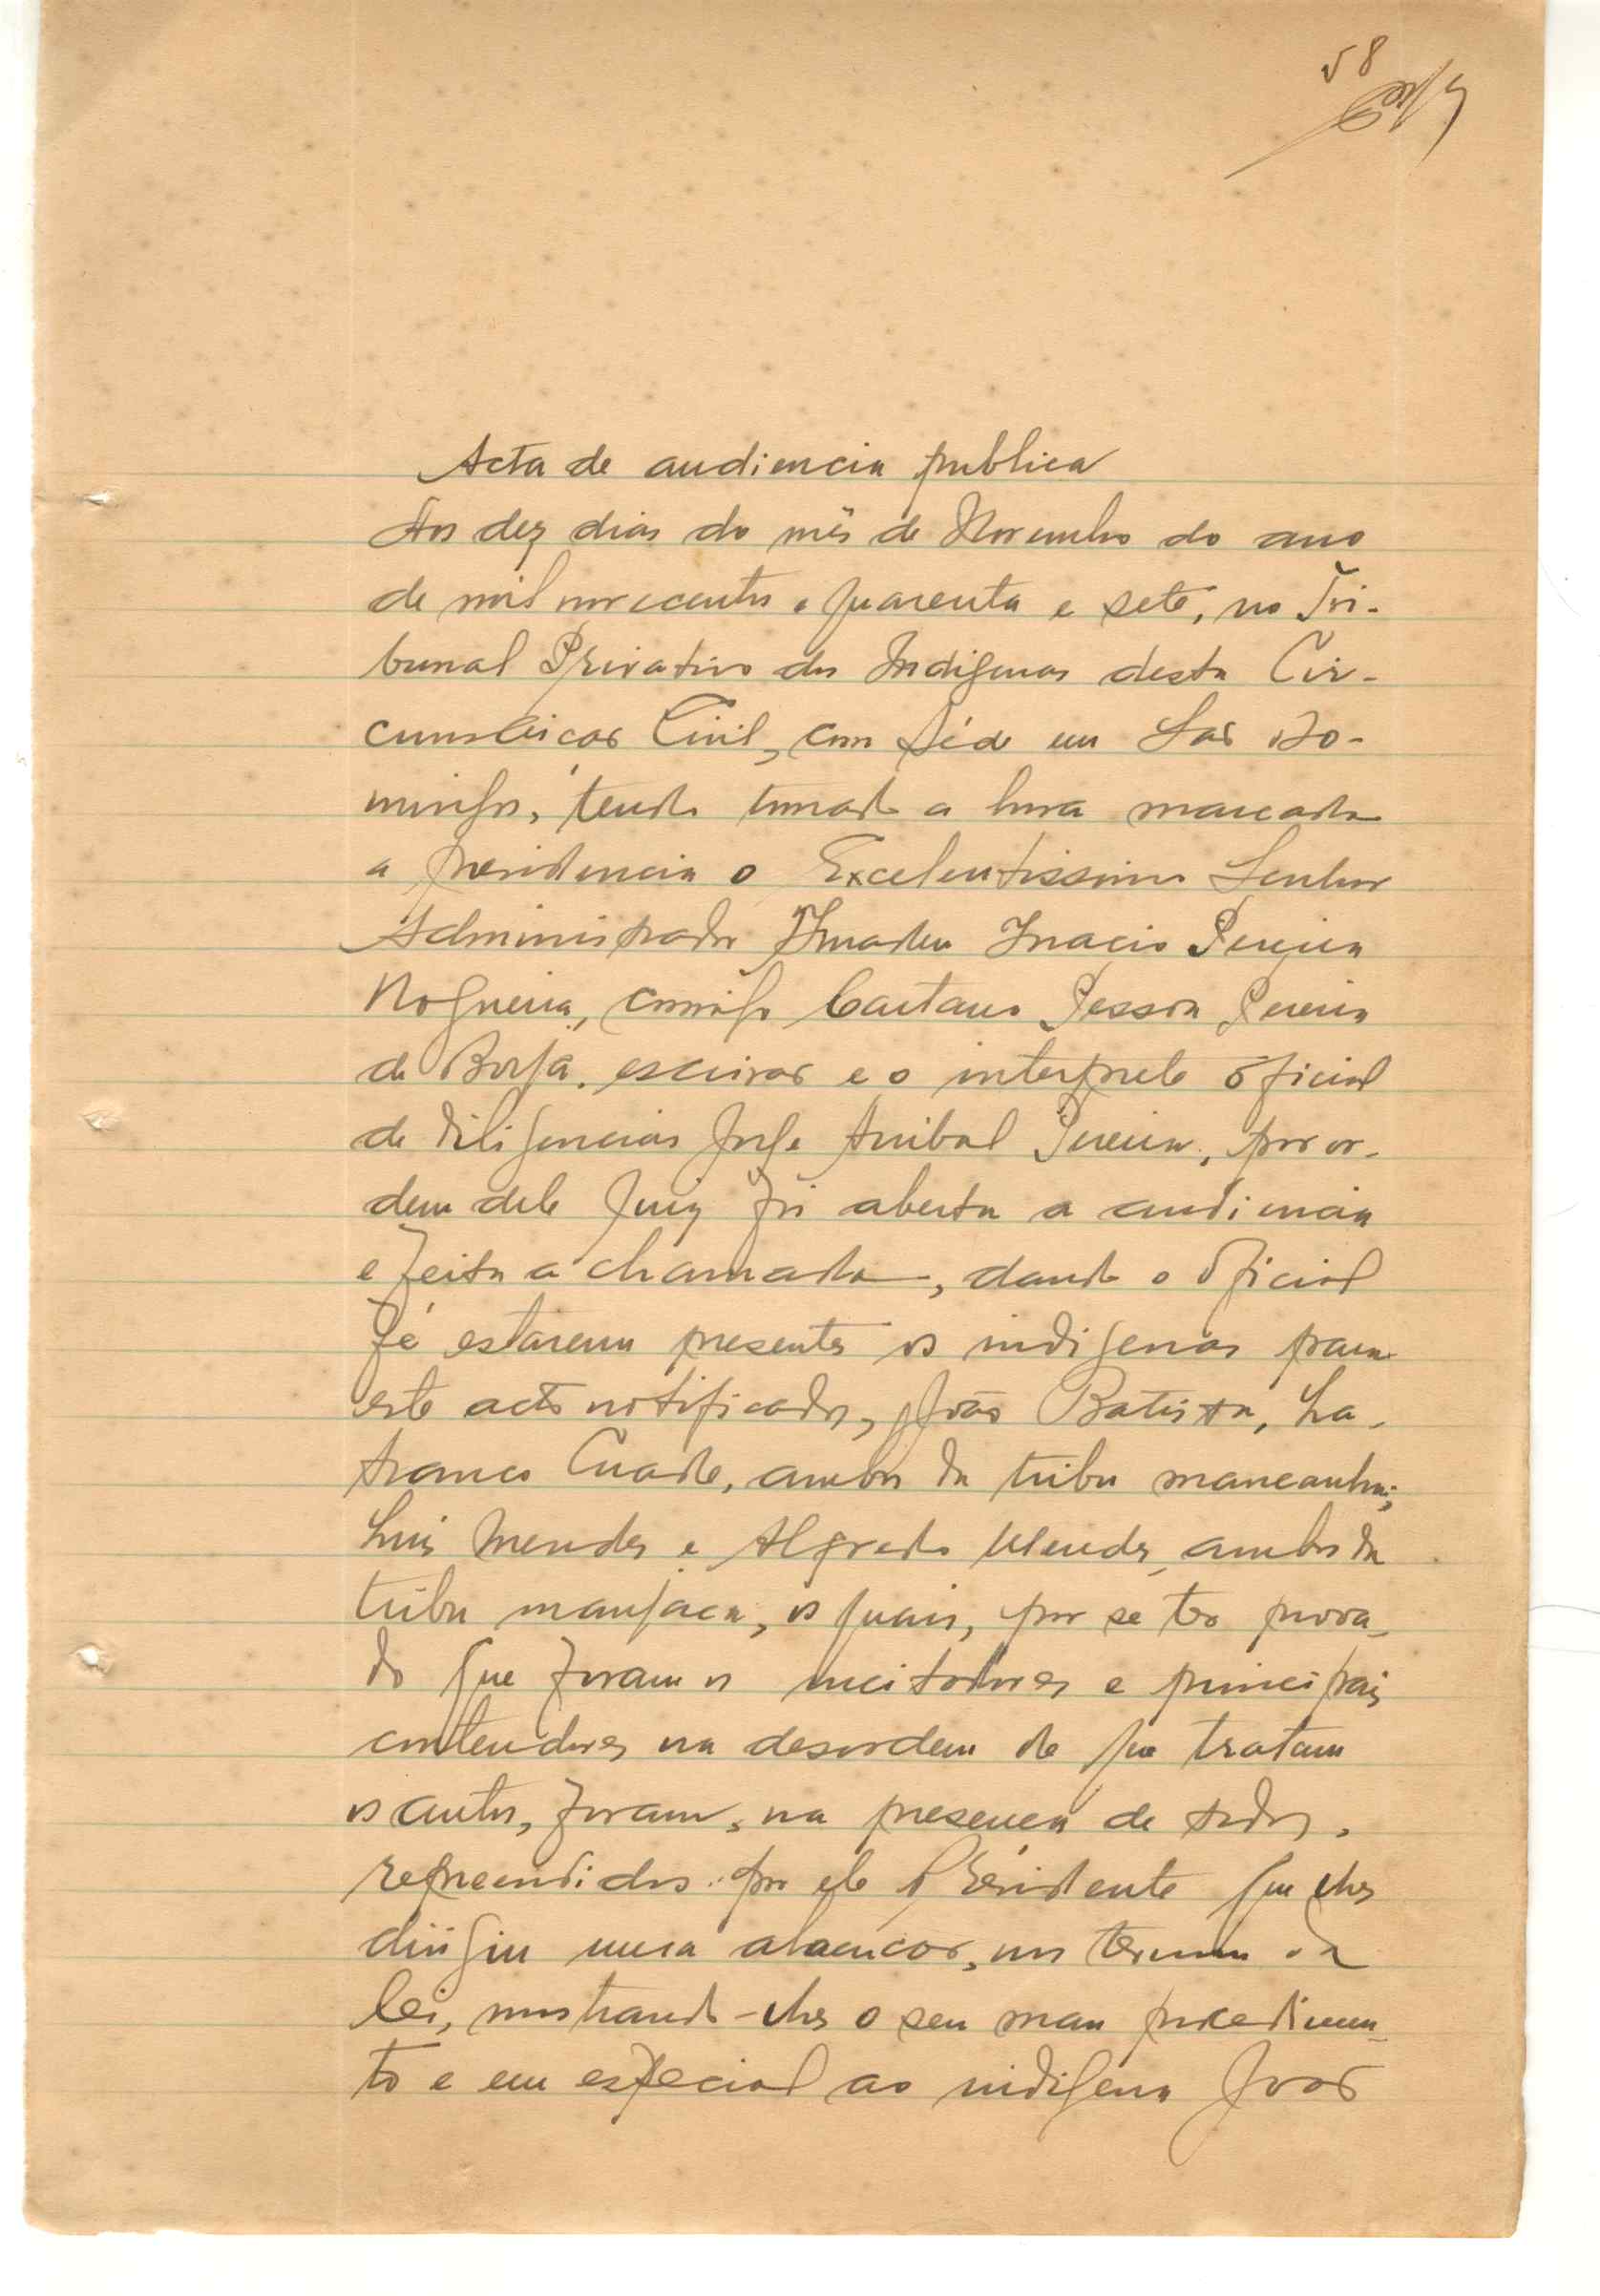 58
Acta de audiencia publica
Aos dez dias do mês de Novembro do ano
de mil novecentos e quarenta e sete, no Tri-
bunal Privativo dos Indigenas desta Cir-
cunscrição Civil, com séde em São Do-
mingos, tendo tomado a hora marcada
a presidencia o Excelentissimo Senhor
Administrador Amadeu Inacio Pereira
Nogueira, comigo Caetano Pessoa Pereira
de Borja, escrivão e o interprete oficial
de diligencias Jorge Anibal Pereira, por or-
dem dele Juiz foi aberta a audiencia
e feita a chamada, dando o oficial
fé estarem presentes os indigenas para
este acto notificados, João Batista, La-
tranco Cuade, ambos da tribu mancanha;
Luis Mendes e Alfredo Mendes, ambos da
tribu manjaca, os quais, por se ter prova-
do que foram os incitadores e principais
contendores na desordem de que tratam
os autos, foram, na presença de todos,
repreendidos por ele Presidente que lhes
dirigiu uma alocução, nos termos da
lei, mostrando-lhes o seu mau procedimen-
to e em especial ao indigena João